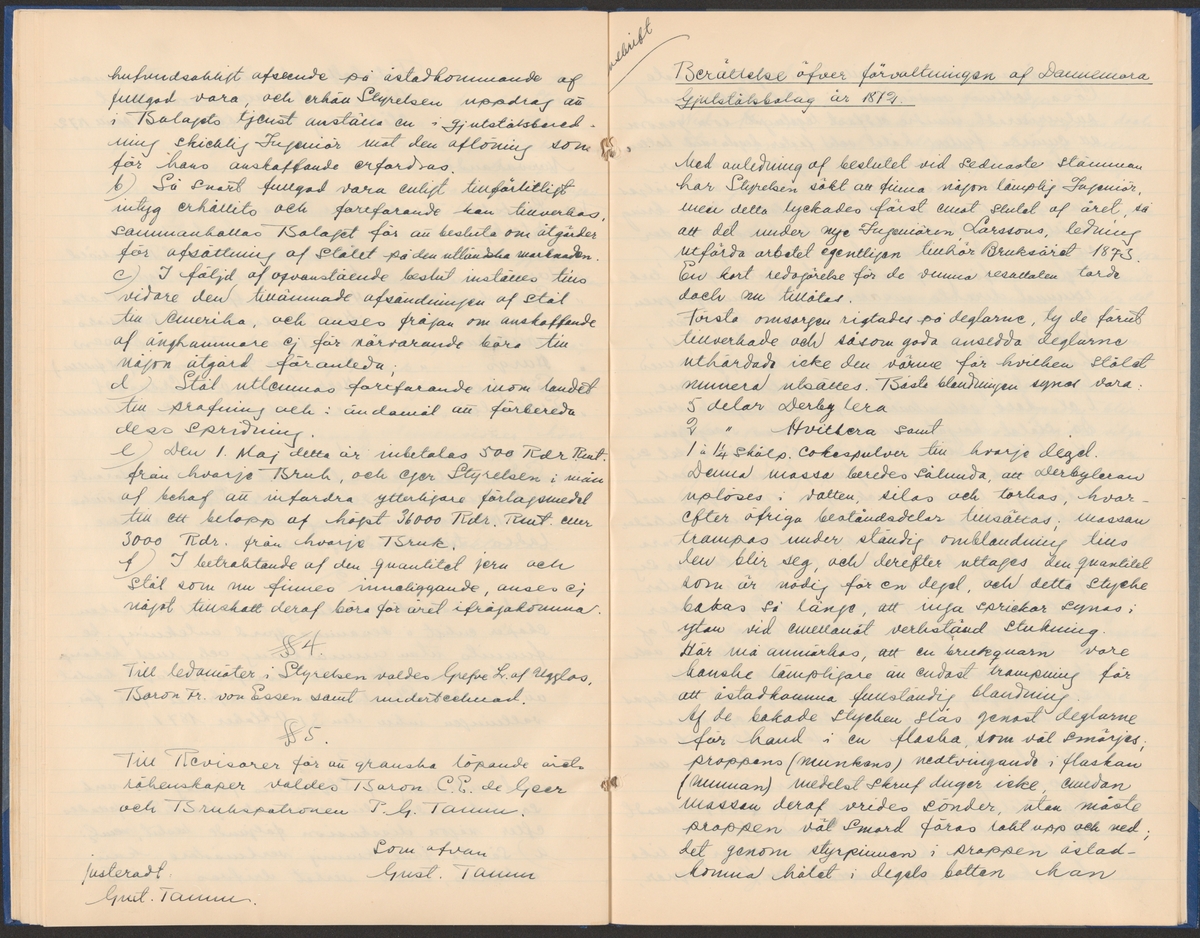 hufvudsakligt afseende på åstadkommande af
fullgod vara, och erhåll Styrelsen uppdrag att
i Bolagets tjenst anställa en i gjutstålsbered-
ning skicklig Ingeniör mot den aflöning som
för hans anskaffande erfordras.
b) Så snart fullgod vara enligt tillförlitligt
intyg erhållits och förefarande kan tillverkas,
sammankallas Bolaget för att besluta om åtgärder
för afsättning af Stålet på den utländska marknaden.
c) I följd af ofvanstående beslut inställes tills
vidare den tillämnade afsändningen af Stål
till Amerika, och anses frågan om anskaffande
af ånghammare ej för närvarande böra till
någon åtgärd föranleda;
d) Stål utlemnas förefarande inom landet
till profning och i ändamål att förbereda
dess spridning.
e) Den 1. Maj detta år inbetalas 500 Rdr Rmt.
från hvarje Bruk, och eger Styrelsen i mån
af behof att infordra ytterligare förlagsmedel
till ett belopp af högst 36000 Rdr. Rmt. eller
3000 Rdr. från hvarje Bruk.
f) I betraktande af den quantitet jern och
Stål som nu finnes inneliggande, anses ej
något tillskott deraf böra för året ifrågakomma.
§ 4.
Till ledamöter i Styrelsen valdes Grefve L. af Ugglas,
Baron Fr. von Essen samt undertecknad.
§ 5.
Till Revisorer för att granska löpande års
räkenskaper valdes Baron C.E. de Geer
och Brukspatronen P. G. Tamm.
Som ofvan
justeradt. Gust. Tamm
Gust. Tamm.
Berättelse öfver förvaltningen af Dannemora
Gjutstålsbolag år 1872.
Med anledning af beslutet vid sednaste stämman
har Styrelsen sökt att finna någon lämplig Ingeniör,
men detta lyckades först emot slutet af året, så
att det under nye Ingeniören, Larssons, ledning
utförda arbetet egentligen tillhör Bruksåret 1873.
En kort redogörelse för de vunna resultaten torde
dock nu tillåtas.
Första omsorgen rigtades på deglarne, ty de förut
tillverkade och såsom goda ansedda deglarne
uthärdade icke den värme för hvilken Stålet
numera utsättes. Bästa blandningen synes vara:
5 delar Derby lera
2 " Hvitlera samt
1 á 1/4 skålp. Cokespulver till hvarje degel.
Denna massa beredes sålunda, att Derbyleran
upplöses i vatten, silas och torkas, hvar-
efter öfriga beståndsdelar tillsättas; massan
trampas under ständig omblandning tills
den blir seg, och derefter uttages den quantitet
som är nödig för en degel, och detta stycke
bakas så länge, att inga sprickor synas i
ytan vid emellanåt verkställd stukning.
Här må anmärkas, att en brukqvarn vore
kanske lämpligare än endast trampning för
att åstadkomma fullständig blandning.
Af de bakade stycken slås genast deglarne
för hand i en flaska, som väl smörjes;
proppens (munkens) nedtvingande i flaskan
(nunnan) medelst skruf duger icke, emedan
massan deraf vrides sönder, utan måste
proppen väl smord föras rakt upp och ned;
det genom styrpinnen i proppen åstad-
komna hålet i degels botten kan